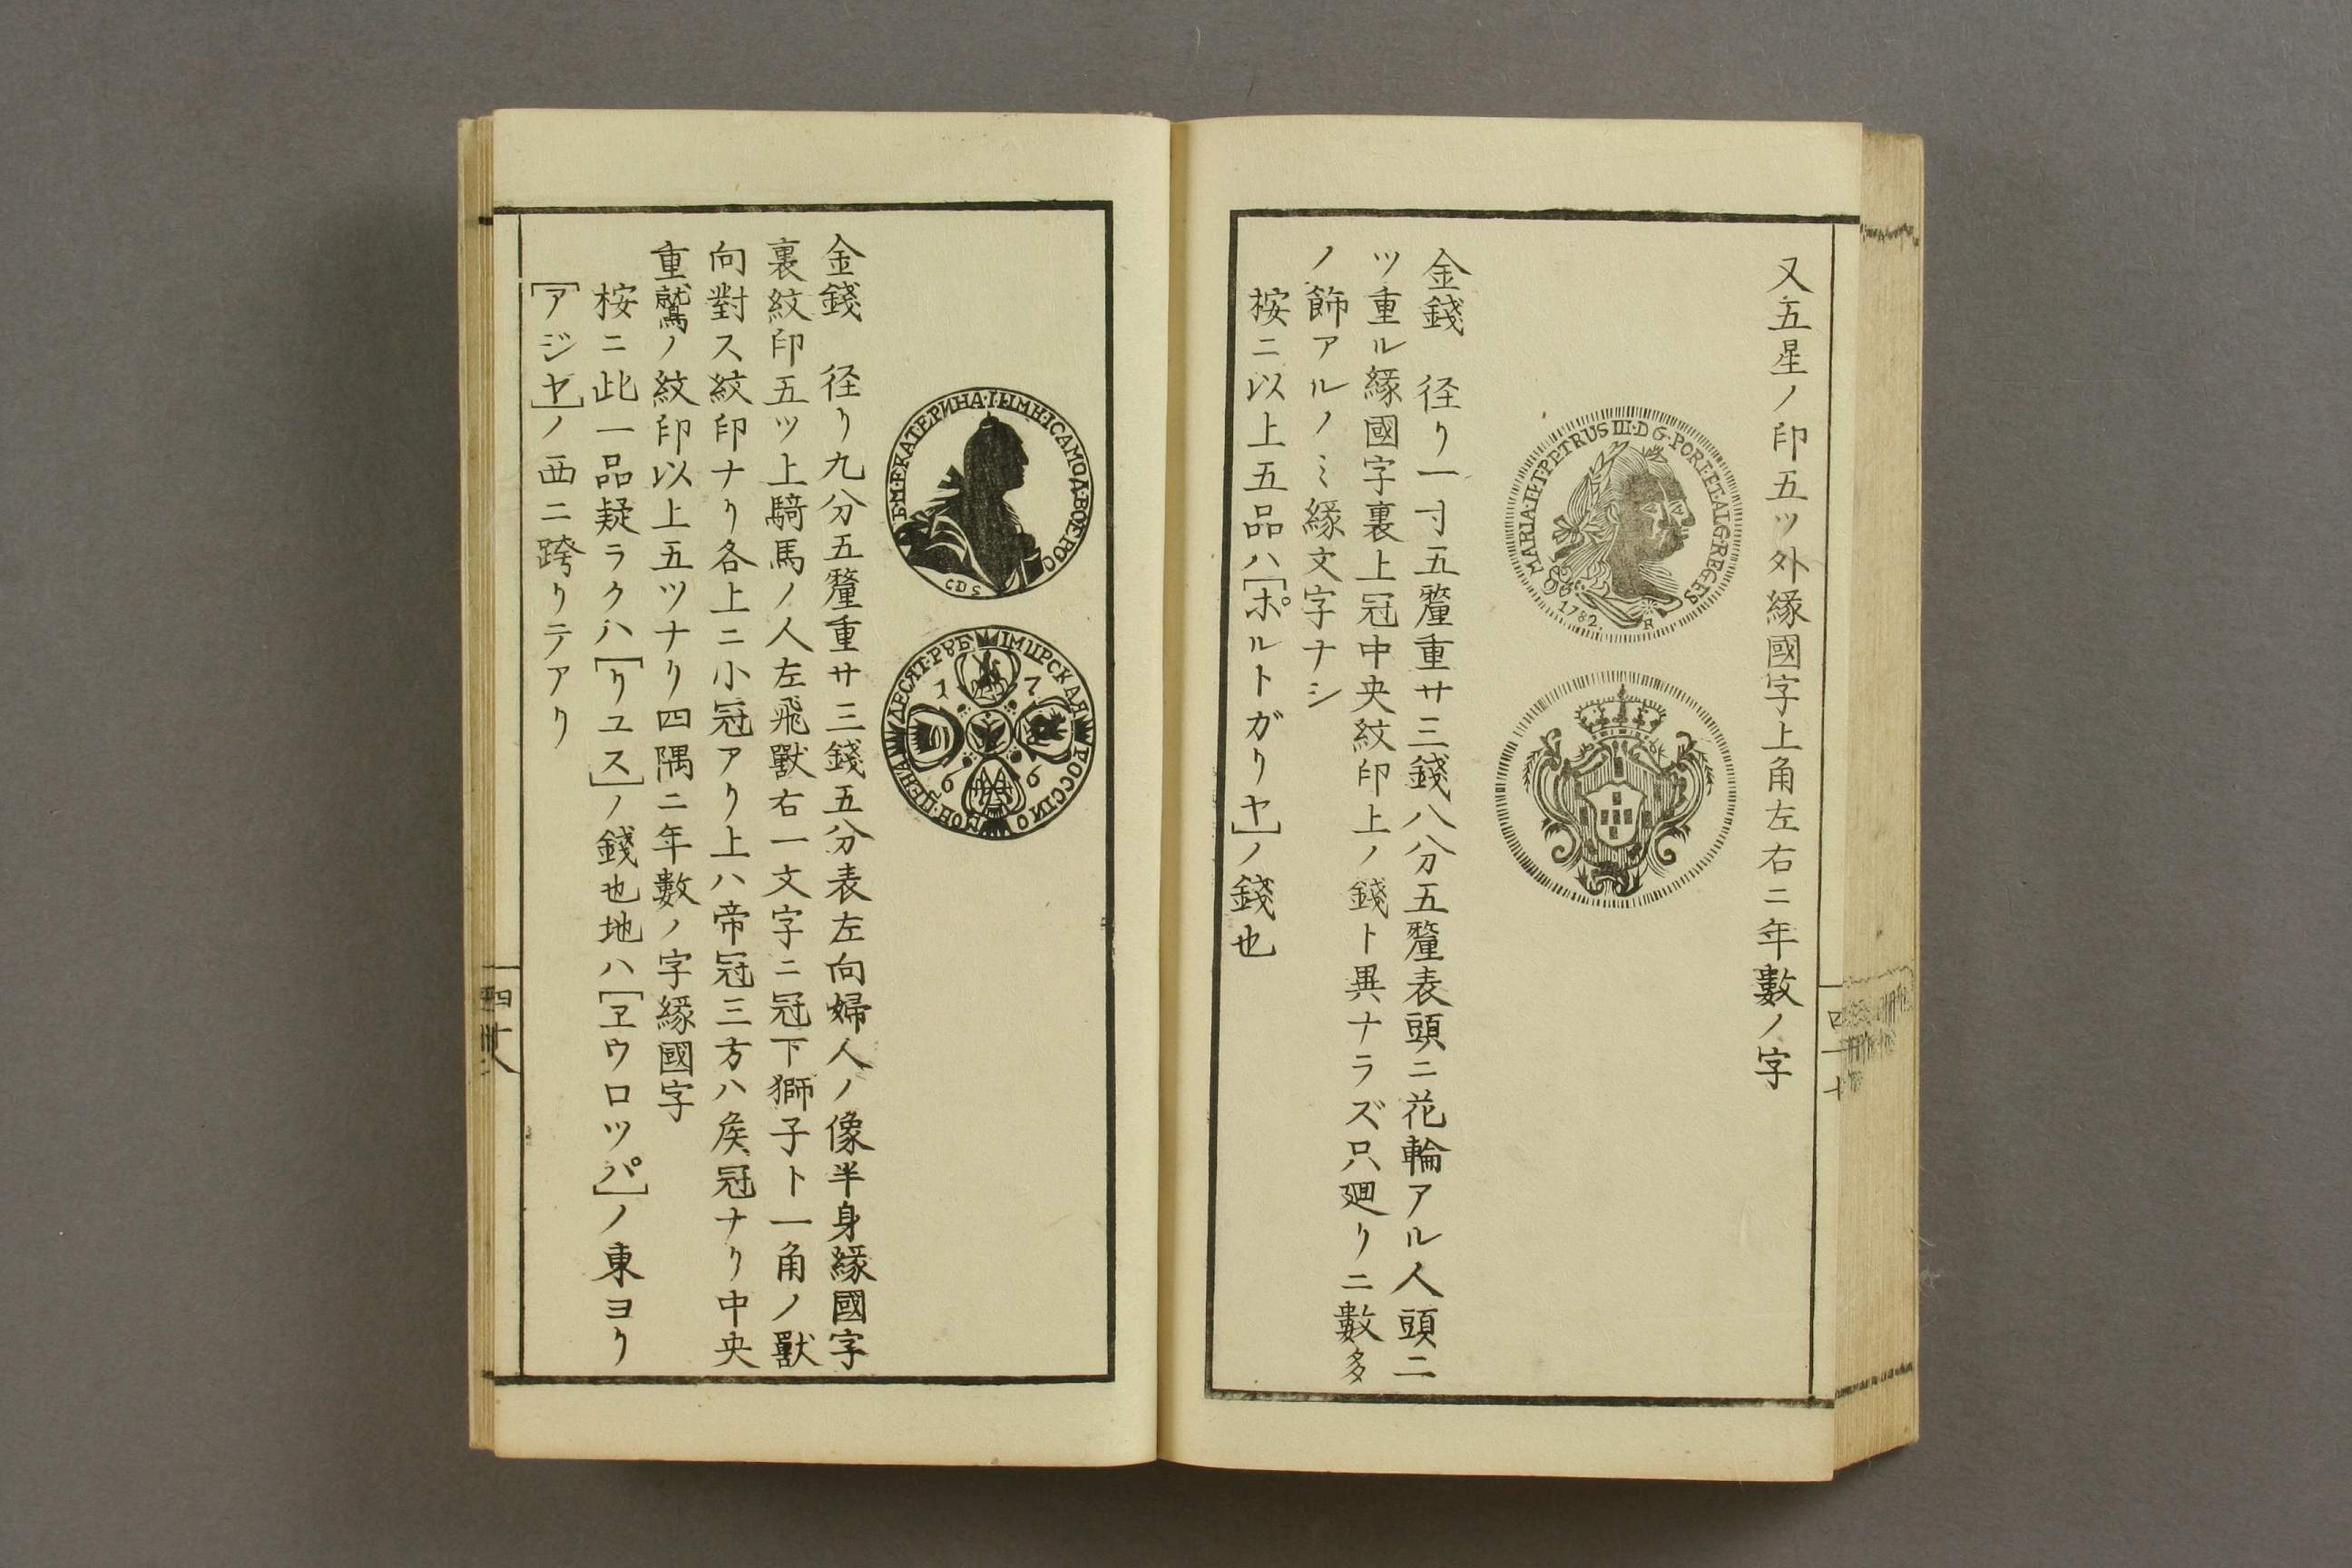 又五星ノ印五ツ外縁國字上角左右ニ年數ノ字
MARIA·I·ET·PETRUS III·D·G·PORT·ET·ALG·REGES
1782.
R
金錢　径リ一寸五釐重サ三錢八分五釐表頭ニ花輪アル人頭二
ツ重ル縁國字裏上冠中央紋印上ノ錢ト異ナラズ只廻リニ數多
ノ飾アルノミ縁文字ナシ
桉ニ以上五品ハ[ポルトガリヤ]ノ錢也
四十
БМ·ЕКАТЕРИНА·II·ІМП·ІСАМОД·ВОЕ·РОС
СПБ
ІМПРСКАЯ РОССІИО МОН·ЦЕНА ДЕСЯТ·РУБ
1766
金錢　径リ九分五釐重サ三錢五分表左向婦人ノ像半身縁國字
裏紋印五ツ上騎馬ノ人左飛獸右一文字ニ冠下獅子ト一角ノ獸
向對ス紋印ナリ各上ニ小冠アリ上ハ帝冠三方ハ矦冠ナリ中央
重鷲ノ紋印以上五ツナリ四隅ニ年數ノ字縁國字
桉ニ此一品疑ラクハ[リユス]ノ錢也地ハ[ヱウロツパ]ノ東ヨリ
[アジヤ]ノ西ニ跨リテアリ